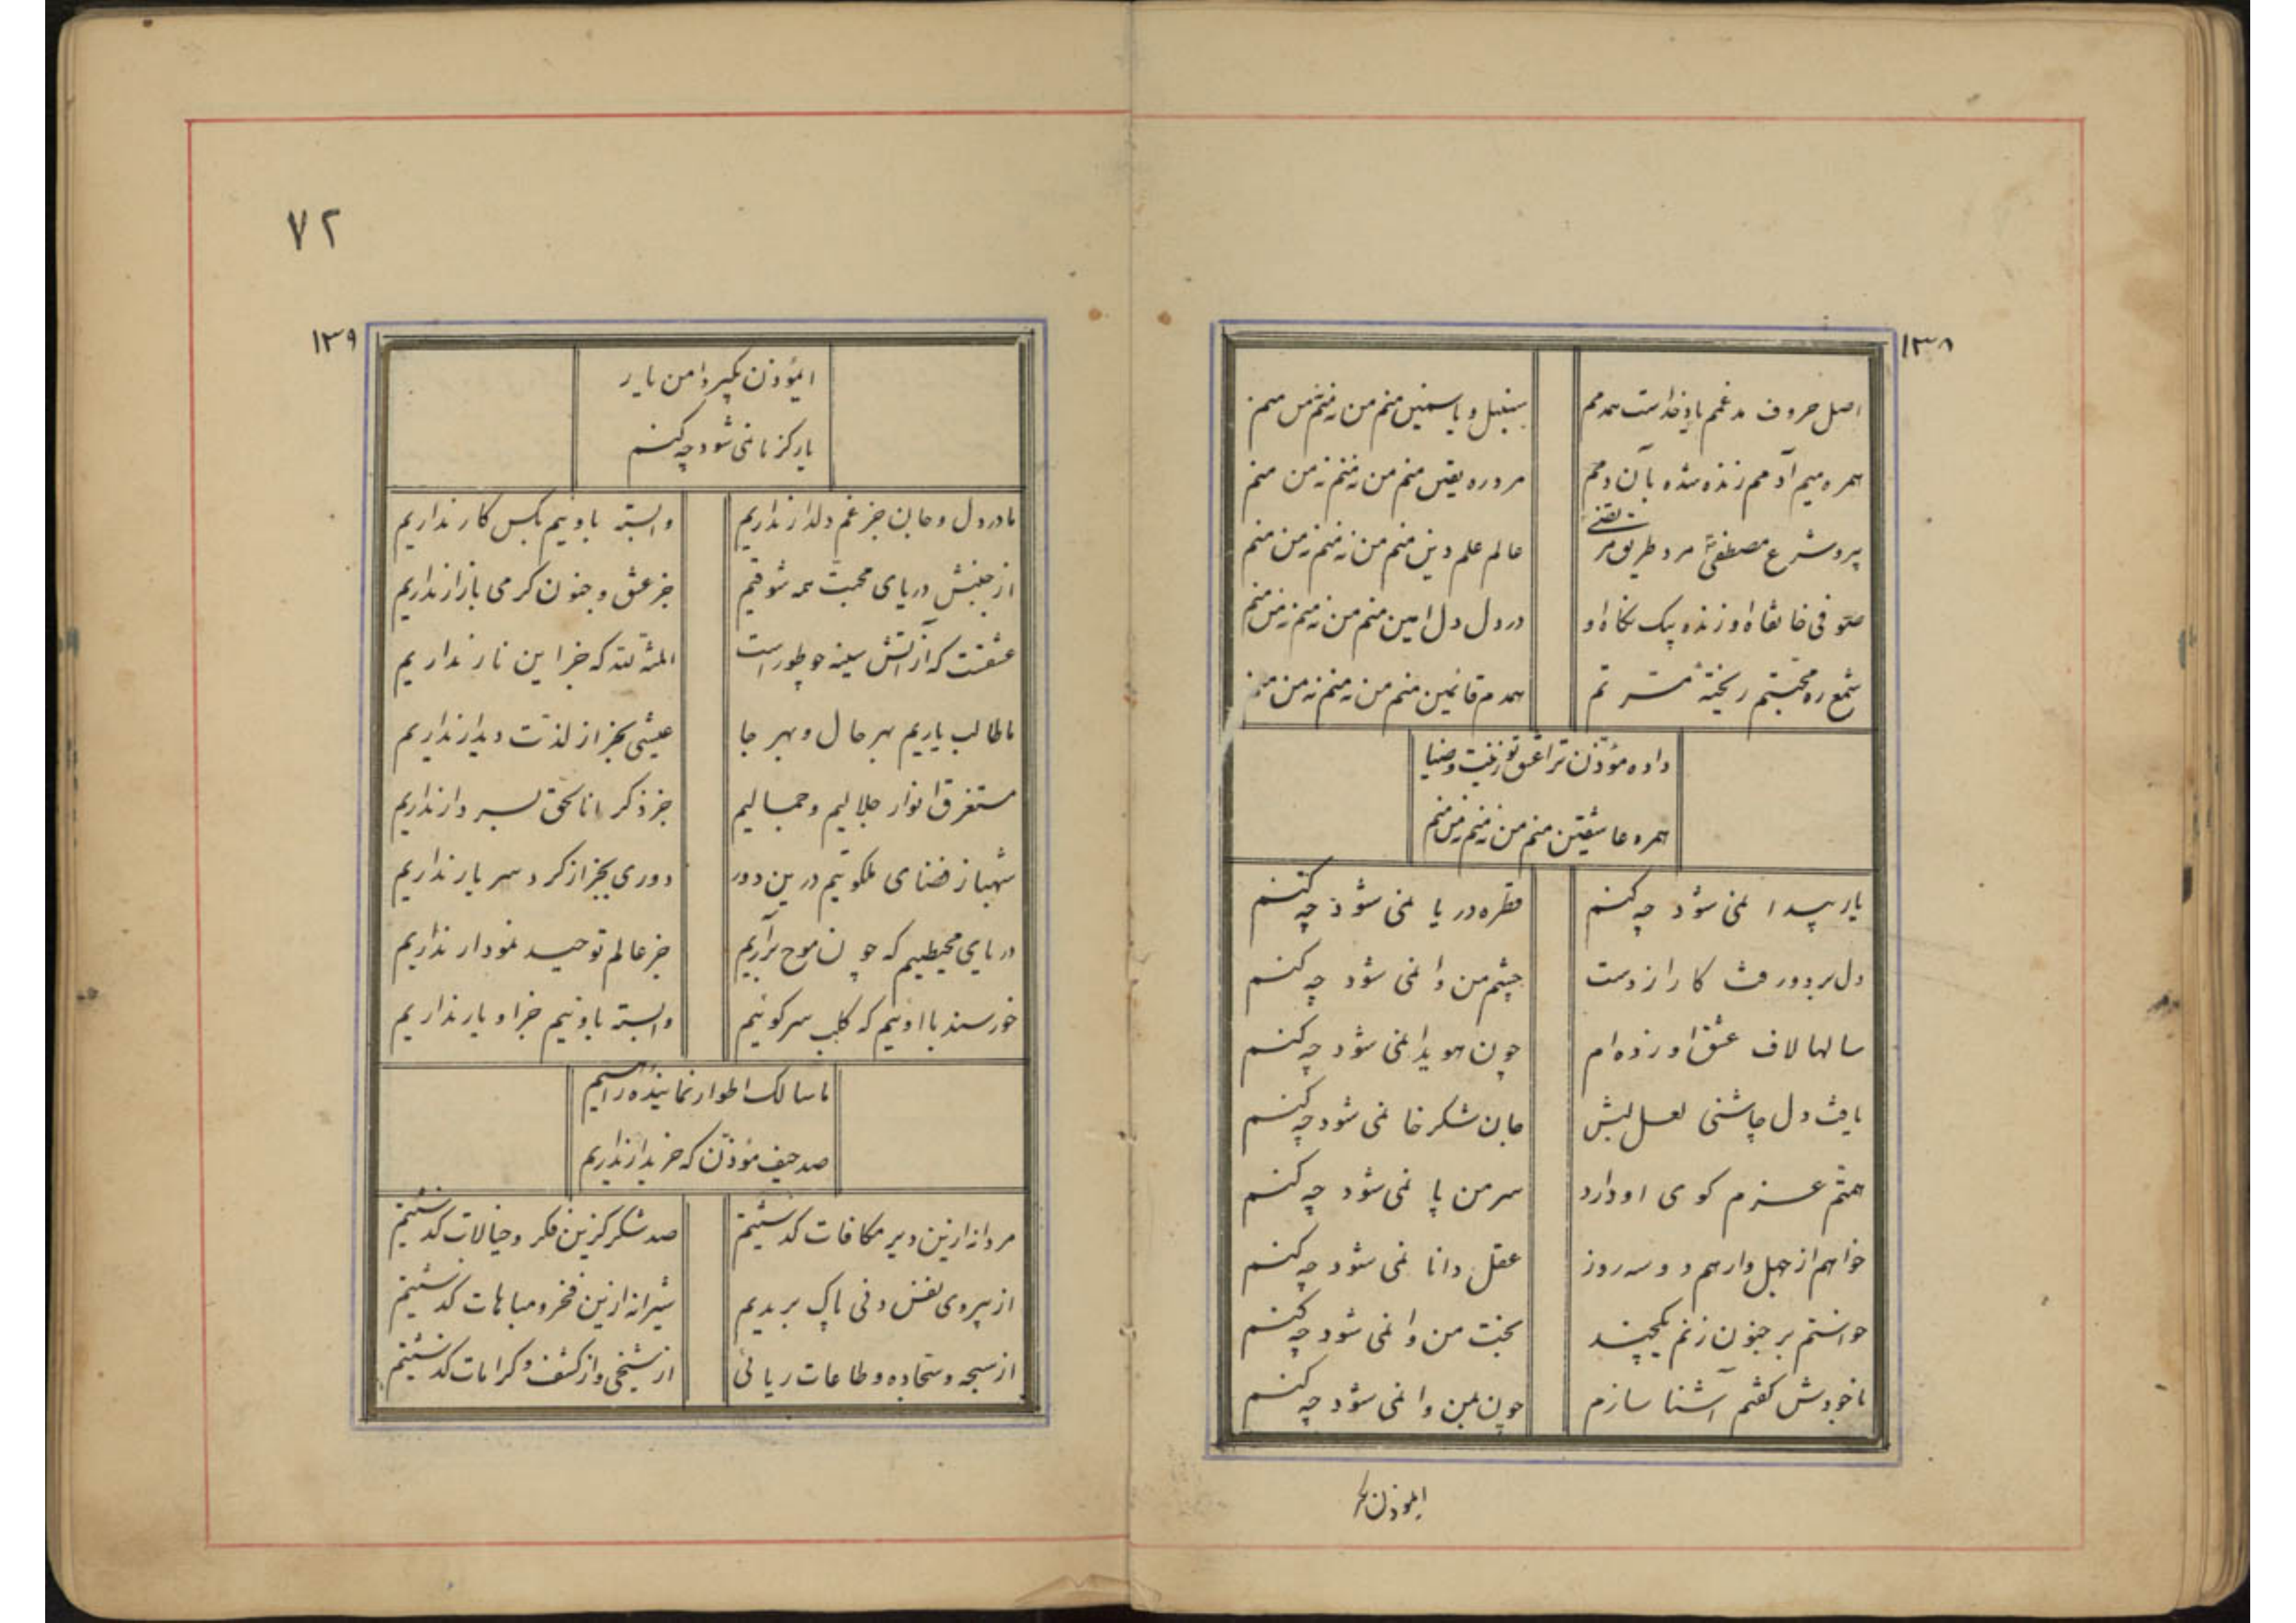 ١٣٨
اصل حروف مدغم یاد خداست همدمم سنبل و یاسمین منم من نه منم نه من منم
همره میم آدمم زنده شده بآن دمم مرد ره یقین منم من نه منم نه من منم
پیرو شرع مصطفی مرد طریق مرتضی عالم علم دین منم من نه منم نه من منم
صوفی خانقاه او زنده بیک نگاه او در دل دل امین منم من نه منم نه من منم
شمع ره محبتم ریخته همدم قانمین منم من نه منم نه من منم
داده مؤذن ترا عشق تو زینت و ضیا
همره عاشقین منم من نه منم نه من منم
یار پیدا نمی شود چه کنم قطره دریا نمی شود چه کنم
دل ببرد و رفت کار از دست چشم من وا نمی شود چه کنم
سالها لاف عشق او زده ام چون هویدا نمی شود چه کنم
یافت دل چاشنی لعل لبش جان شکرخا نمی شود چه کنم
همتم عزم کوی او دارد سر من پا نمی شود چه کنم
خواهم از جهل وارهم دو سه روز عقل دانا نمی شود چه کنم
خواستم بر جنون زنم یکچند بخت من وا نمی شود چه کنم
با خودش گفتم آشنا سازم چون بمن وا نمی شود چه کنم
ایموذن بکر
٧٢
١٣٩
ایمؤذن بگیر دامن یار
یار کز ما نمی شود چه کنم
ما در دل و جان جز غم دلدار نداریم وابسته باوئیم بکس کار نداریم
از جنبش دریای محبت همه شوقیم جز عشق و جنون گرمی بازار نداریم
عشقت که از آتش سینه چو طور است المنة لله که جز این نار نداریم
ما طالب یاریم بهر حال و بهر جا عیشی بجز از لذت دیدار نداریم
مستغرق انوار جلالیم و جمالیم جز ذکر انا الحق بسر دار نداریم
شهباز فضای ملکوتیم درین دور دوری بجز از گرد سر یار نداریم
دریای محیطیم که چون موج برآریم جز عالم توحید نمودار نداریم
خورسند باوئیم که کلب سر کوئیم وابسته باوئیم جز او یار نداریم
ما سالک اطوار نماینده راهیم
صد حیف مؤذن که خریدار نداریم
مردانه ازین دیر مکافات گذشتیم صد شکر کزین فکر و خیالات گذشتیم
از پیروی نفس دنی پاک بریدیم شیرانه ازین فخر و مباهات گذشتیم
از سبحه و سجاده و طاعات ریائی از شیخی و از کشف و کرامات گذشتیم